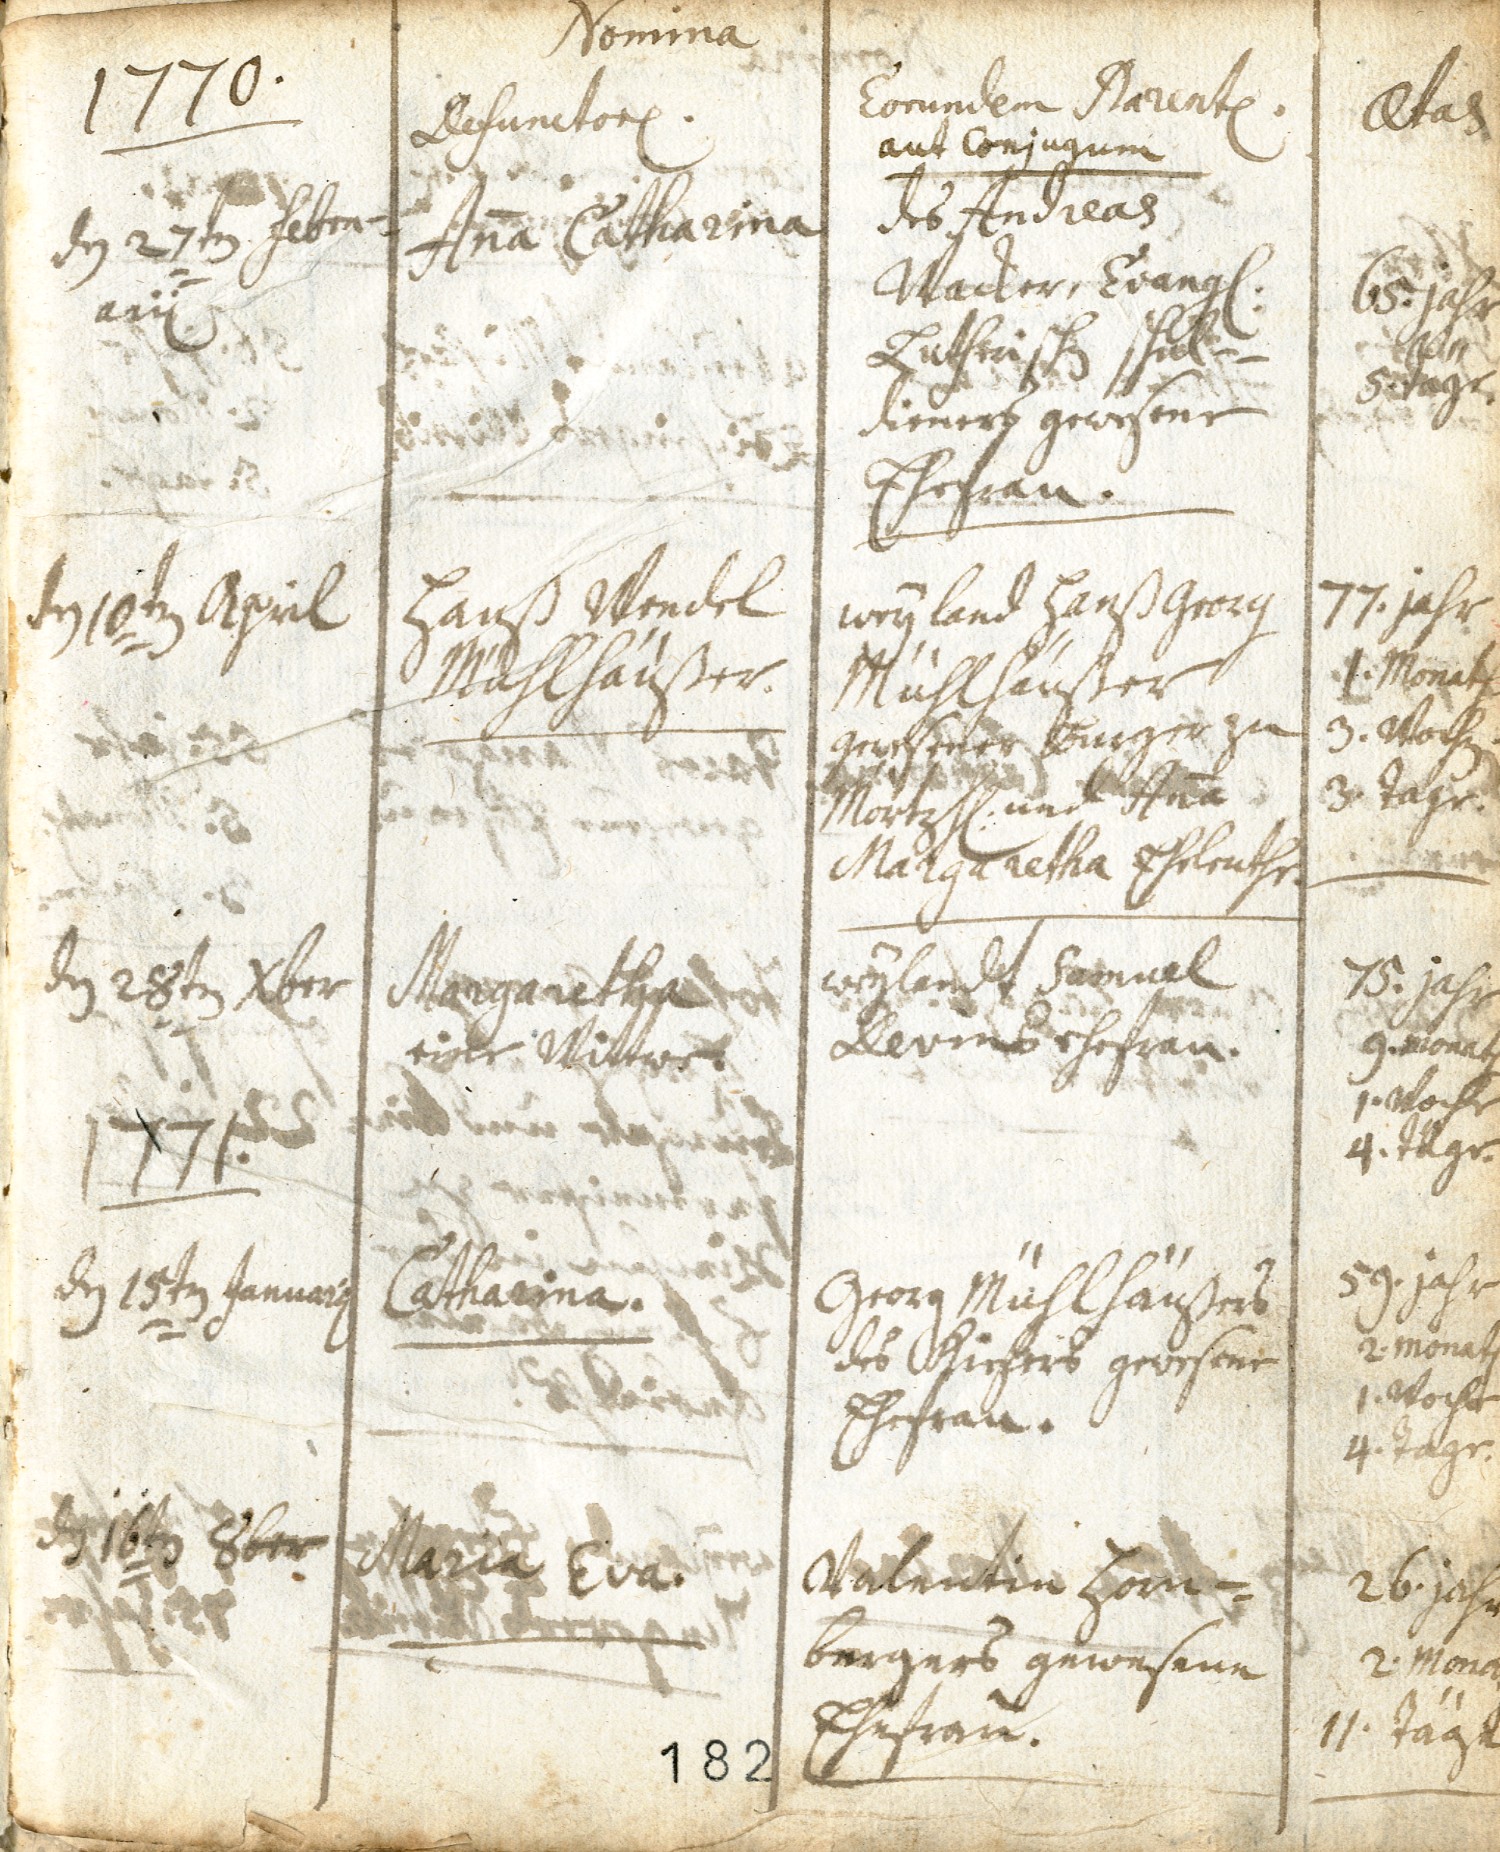 1770.
Nomina
Defunctor.
Eorundem Parent.
aut Conjugum
Ætas
den 27ten Febru-
arii
Aña Catharina
des Andreas
Wacker, Evangl:
Lutherisch Schul-
dieners gewesene
Ehefrau.
65. jahr
5. Tage.
den 10ten April
Hanß Wendel
Mühlhäußer.
weyland Hanß Georg
Mühlhäußer
gewesener Burger zu
und Aña
Margaretha
77. jahr
1. Monath
3. Wochen
3. Tage.
den 28ten Xber
Margaretha
eine Wittwe.
weylandt Samuel
Ehefrau.
75. jahr
9. monath
1. Woche
4. Täge.
1771.
den 15ten Januarij
Catharina.
Georg Mühlhäußers
des Kiefers gewesene
Ehefrau.
59. jahr
2. monath
1. Woche
4. Tage.
den 16ten 8ber
Maria Eva.
Valentin Horn-
bergers gewesene
Ehefrau.
26. jahr
2. Mona
11. Täge
182